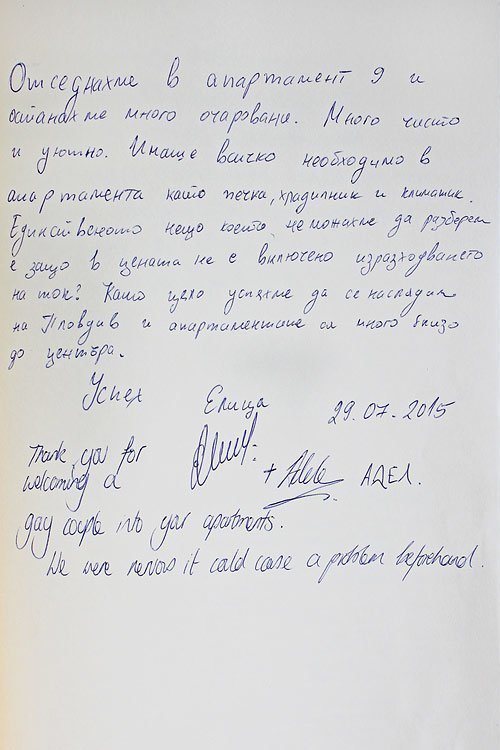 Отседнахме в апартамент 9 и
останахме много очаровани. Много чисто
и уютно. Имаше всичко необходимо в
апартамента като печка, хладилник и климатик.
Единственото нещо което не можахме да разберем
е защо в цената не е включено изразходването
на ток? Като цяло успяхме да се насладим
на Пловдив и апартаментите са много близо
до центъра.
Успех Елица 29.07.2015
Thank you for
welcoming a
+ Adela АДЕЛ.
gay couple into your apartments.
We were nervos it could cause a problem beforehand.